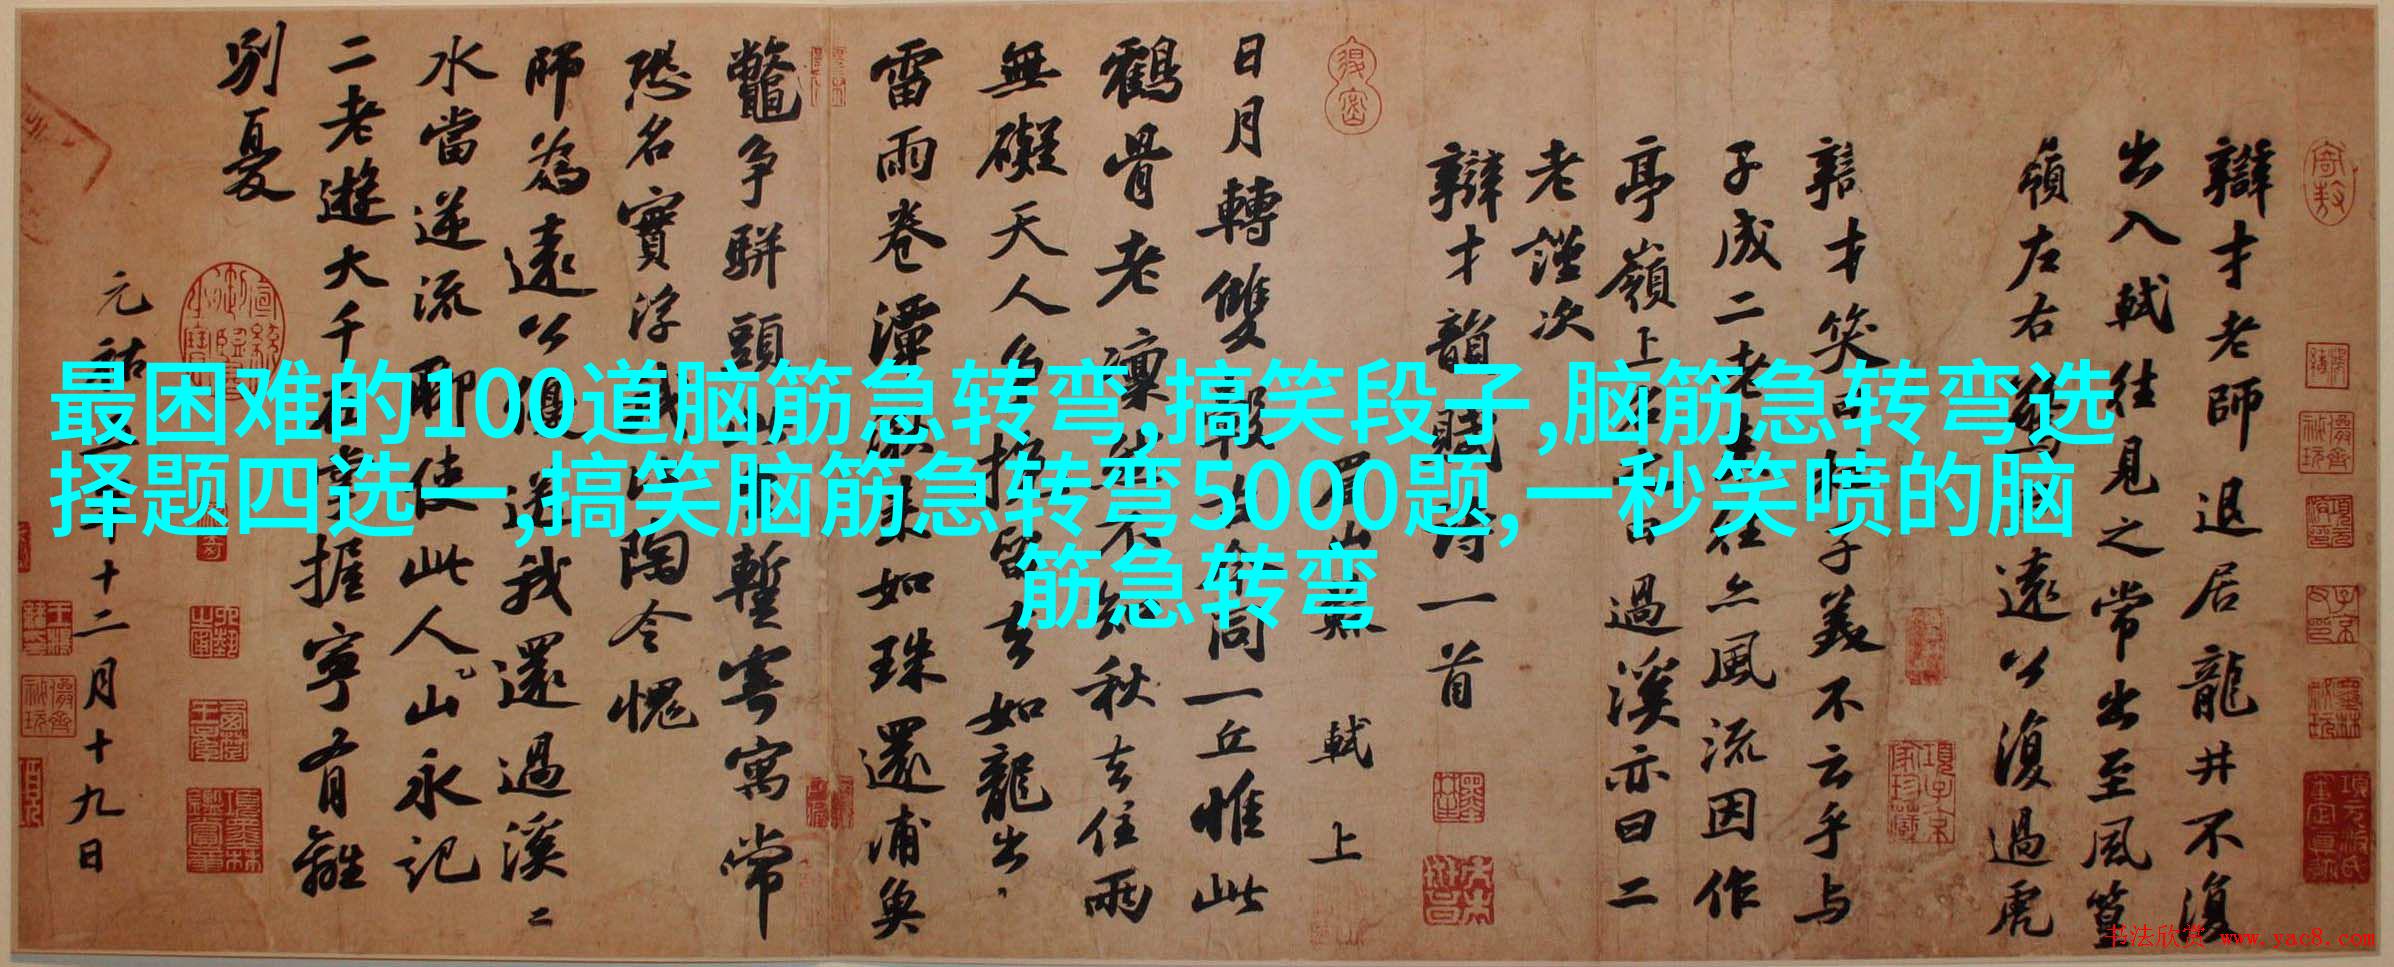 辯才老師退居龍井不復
出入軾往見之常出至風篁
嶺左右驚曰遠公復過虎
辯才笑曰杜子美不云乎与
子成二老來往亦風流因作
亭嶺上名曰過溪亦曰二
老謹次
辯才韻賦詩一首
眉山蘇軾上
日月轉雙轂古今同一丘惟此
鶴骨老凜然不知秋去住兩
無礙天人爭挽留去如龍出
雷雨卷潭湫來如珠還浦魚
鼈争駢頭此生暫寄寓常
恐名實浮我比陶令愧
師為遠公優送我還過溪二
水當逆流聊使此人山永記
二老遊大千在掌握寧有離
别憂
元祐五年十二月十九日
最困难的100道脑筋急转弯,搞笑段子,脑筋急转弯选
择题四选一,搞笑脑筋急转弯5000题,一秒笑喷的脑
筋急转弯
书法欣赏 www.yac8.com